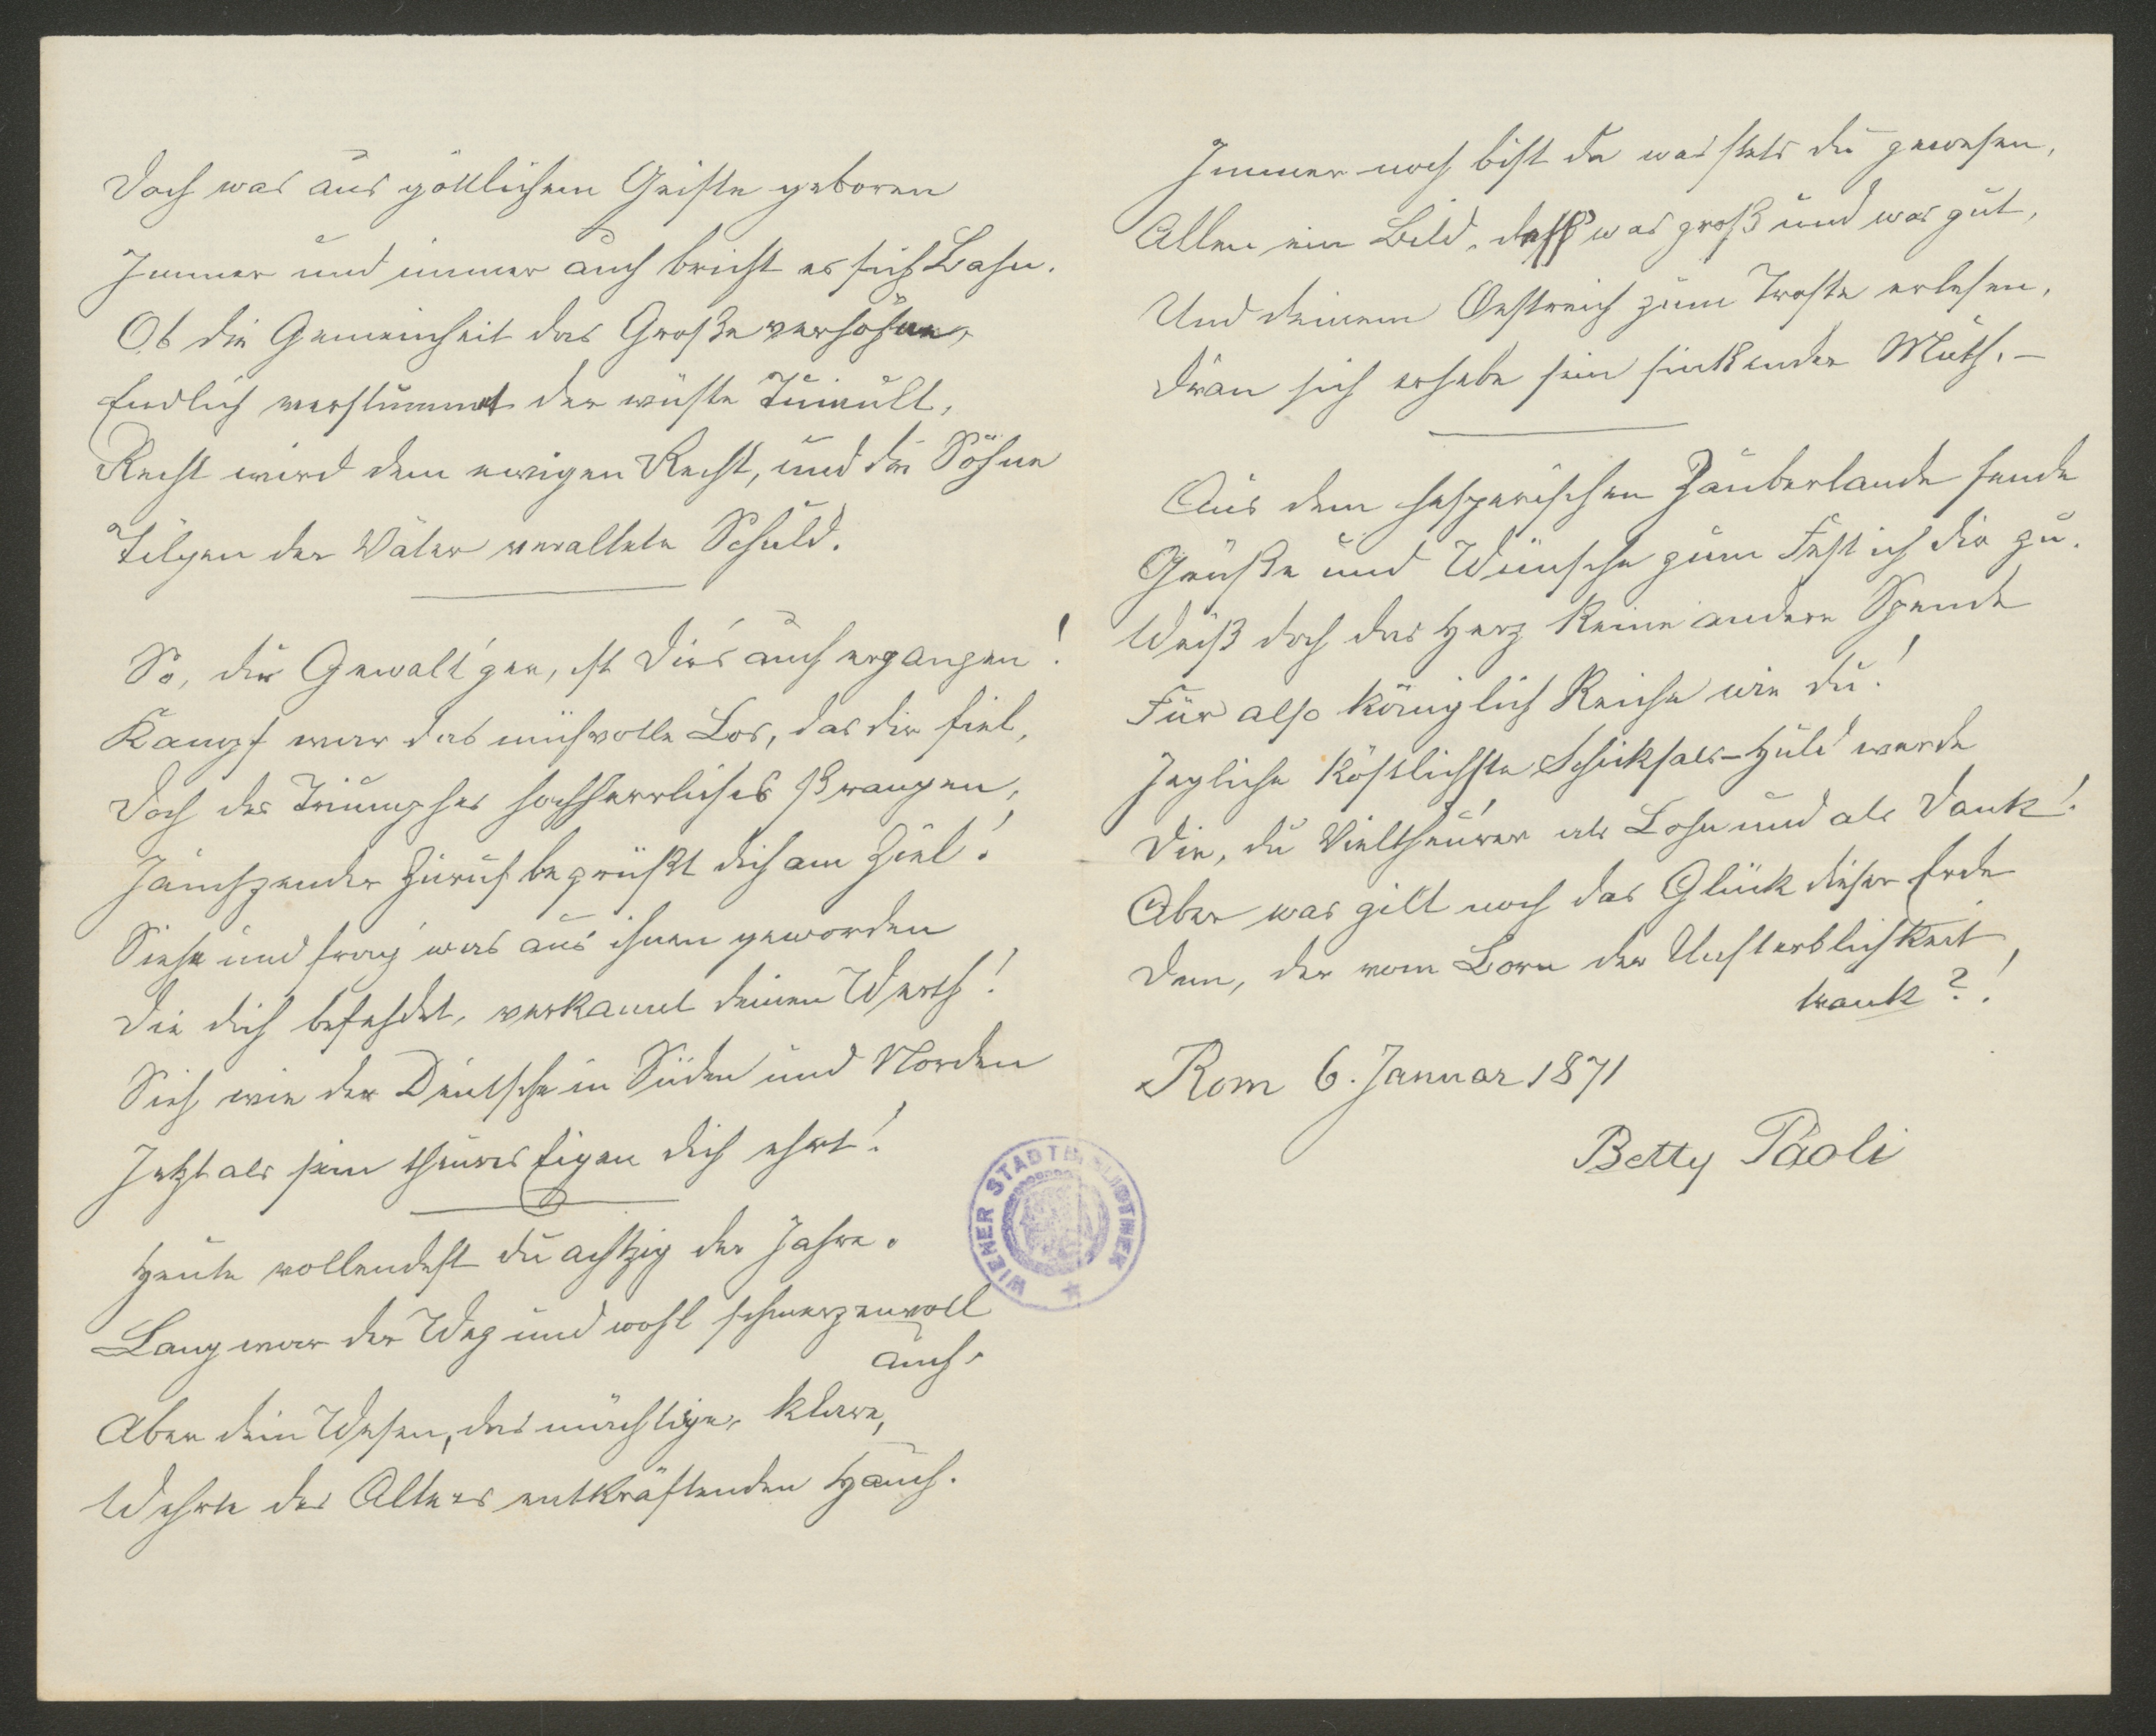 Doch was aus göttlichem Geiste geboren
Immer und immer auch bricht es sich Bahn.
Ob die Gemeinheit das Große verhöhne,
Endlich verstummt der wüste Tumult,
Recht wird dem ewigen Recht, und die Söhne
Tilgen der Väter veraltete Schuld.
So, du Gewalt'ger, ist dir's auch ergangen!
Kampf war das mühvolle Los, das dir fiel,
Doch des Triumphes hochherrliches Prangen,
Jauchzender Zuruf begrüßt dich am Ziel!
Siehe und frag' was aus ihnen geworden
Die dich befehdet, verkannt deinen Werth!
Sieh, wie der Deutsche in Süden und Norden
Jetzt als sein theures Eigen dich ehrt!
Heute vollendest du achtzig der Jahre.
Lang war der Weg und wohl schmerzenvoll
auch.
Aber dein Wesen, das mächtige, klare,
Wehrte des Alters entkräftenden Hauch.
Immer noch bist du was stets du gewesen,
Allen ein Bild, deß was groß und was gut,
Und deinem Oestreich zum Troste erlesen,
Dran sich erhebe sein sinkender Muth. –
Aus dem hesperischen Zauberlande sende
Grüße und Wünsche zum Fest ich dir zu.
Weiß doch das Herz keine andere Spende
Für also königlich Reiche wie du!
Jegliche köstlichste Schicksals-Huld werde
Dir, du Vieltheurer als Lohn und als Dank!
Aber was gilt noch das Glück dieser Erde
Dem, der vom Born der Unsterblichkeit
trank?!
Rom 6. Januar 1871
Betty Paoli
WIENER STADTBIBLIOTHEK